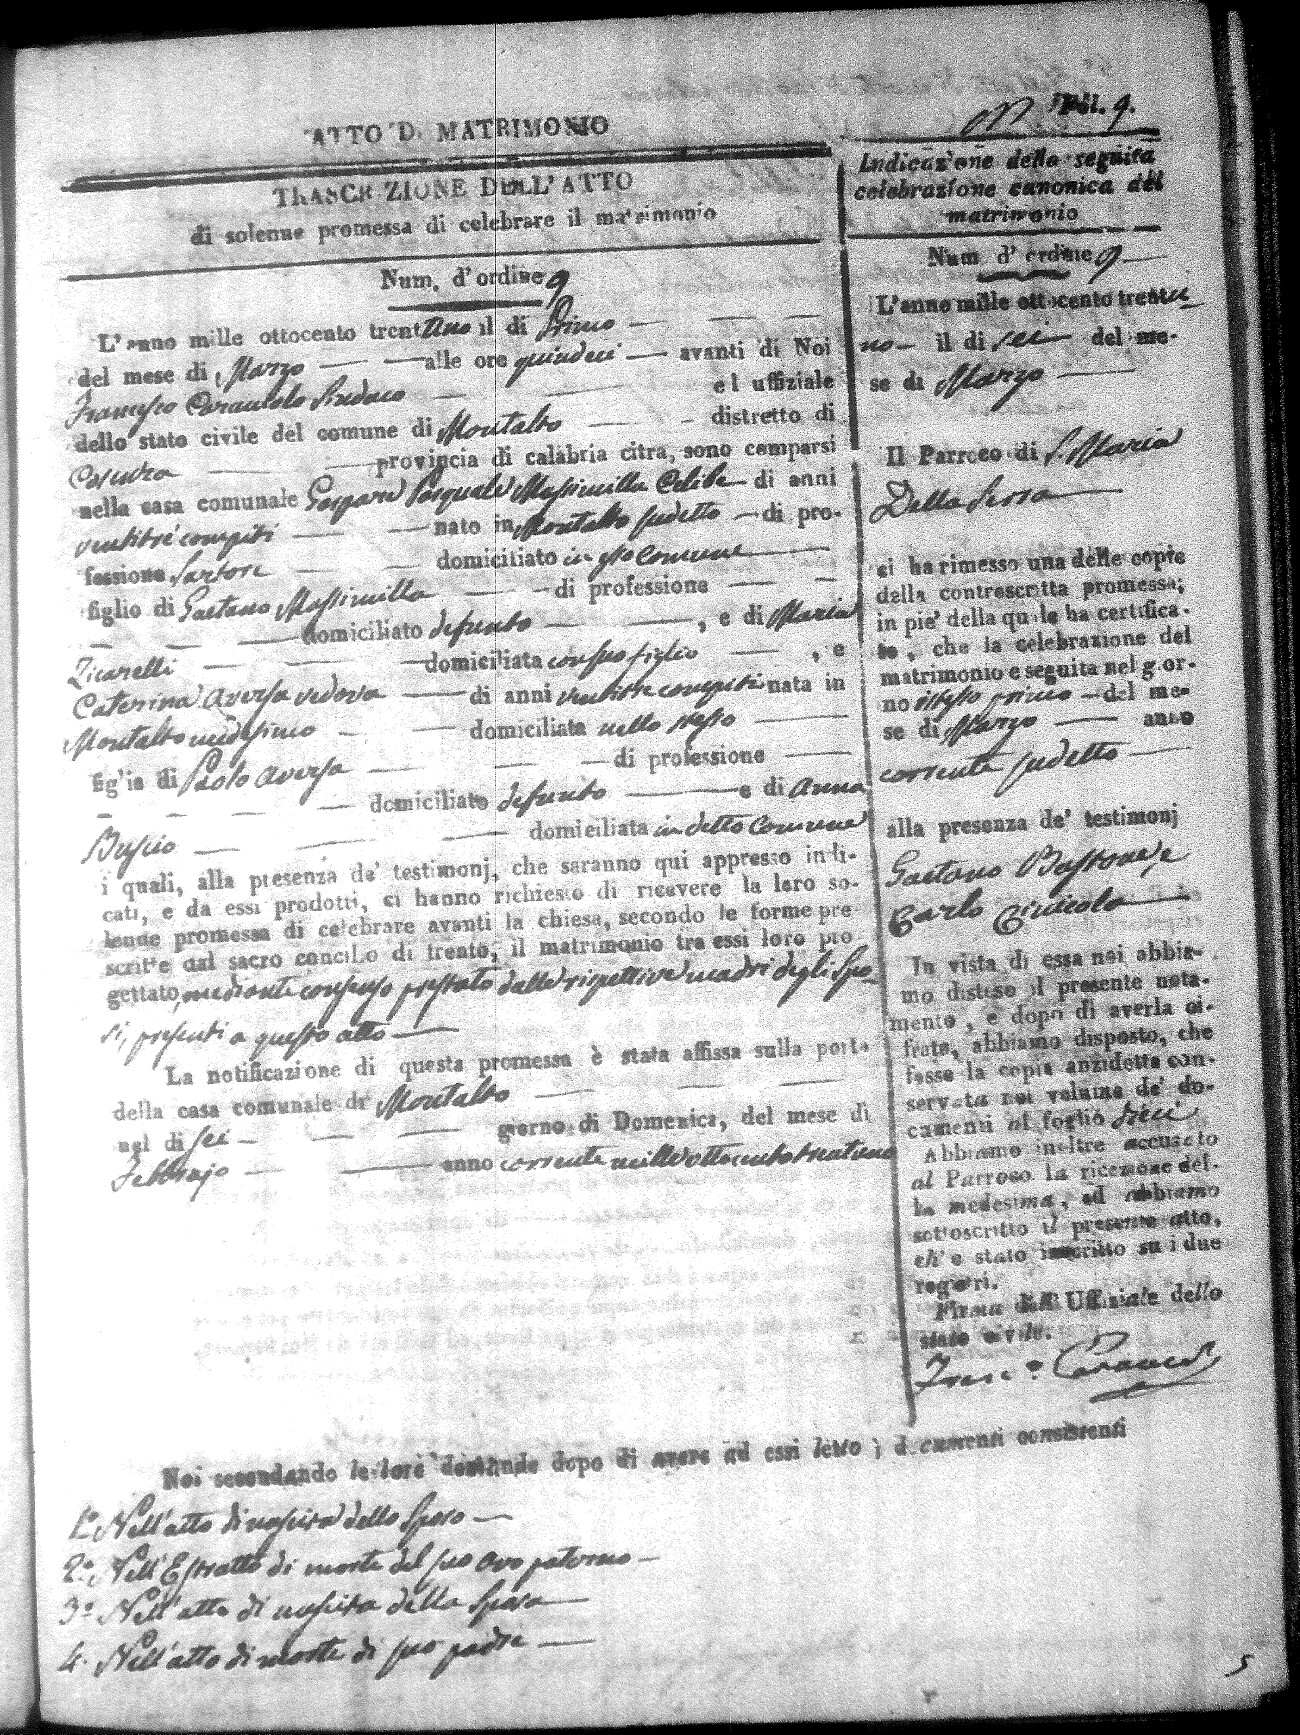 Fol. 9.
ATTO DI MATRIMONIO
TRASCRIZIONE DELL'ATTO
di solenne promessa di celebrare il matrimonio
Num. d'ordine 9
L'anno mille ottocento trentuno il di Primo
del mese di Marzo alle ore quindeci avanti di Noi
Francesco Caracciolo Sindaco ed uffiziale
dello stato civile del comune di Montalto distretto di
Cosenza provincia di calabria citra, sono comparsi
nella casa comunale Gaspare Pasquale Massimilla Celibe di anni
ventitré compiti nato in Montalto sudetto di pro-
fessione Sartore domiciliato in gto Comune
figlio di Gaetano Massimilla di professione
domiciliato defunto , e di Maria
Zicarelli domiciliata con suo figlio , e
Caterina Aversa vedova di anni ventitre compiti nata in
Montalto medesimo domiciliata nello stesso
figlia di Paolo Aversa di professione
domiciliato defunto e di Anna
Buscio domiciliata in detto Comune
i quali, alla presenza de' testimonj, che saranno qui appresso indi-
cati, e da essi prodotti, ci hanno richiesto di ricevere la loro so-
lenne promessa di celebrare avanti la chiesa, secondo le forme pre
scritte dal sacro concilio di trento, il matrimonio tra essi loro pro
gettato, mediante consenso prestato dalle rispettive madri degli Spo-
si, presenti a questo atto
La notificazione di questa promessa è stata affissa sulla porta
della casa comunale di Montalto
nel di sei giorno di Domenica, del mese di
Febbrajo anno corrente milleottocentotrentuno
Indicazione della seguita
celebrazione canonica del
matrimonio
Num d'ordine 9
L'anno mille ottocento trentu
no il di sei del me-
se di Marzo
Il Parroco di S. Maria
Della Serra
ci ha rimesso una delle copie
della controscritta promessa;
in pie' della quale ha certifica-
to, che la celebrazione del
matrimonio e seguita nel gior-
no istesso primo del me-
se di Marzo anno
corrente sudetto
alla presenza de' testimonj
Gaetano Bastone, e
Carlo
In vista di essa noi abbia-
mo disteso il presente nota-
mento, e dopo di averla ci-
frata, abbiamo disposto, che
fosse la copia anzidetta con-
servata nel volume de' do-
camenti al foglio dieci
Abbiamo inoltre accusato
al Parroco la ricezione del-
la medesima, ed abbiamo
sottoscritto il presente atto,
ch' e stato inscritto su i due
registri.
Firma dell' Uffiziale dello
stato civile.
Franc.o
Noi secondando le loro domande dopo di avere ad essi letto i documenti consistenti
1.o Nell'atto di nascita dello Sposo
2.o Nell'Estratto di morte del suo avo paterno
3.o Nell'atto di nascita della Sposa
4. Nell'atto di morte di suo padre
5